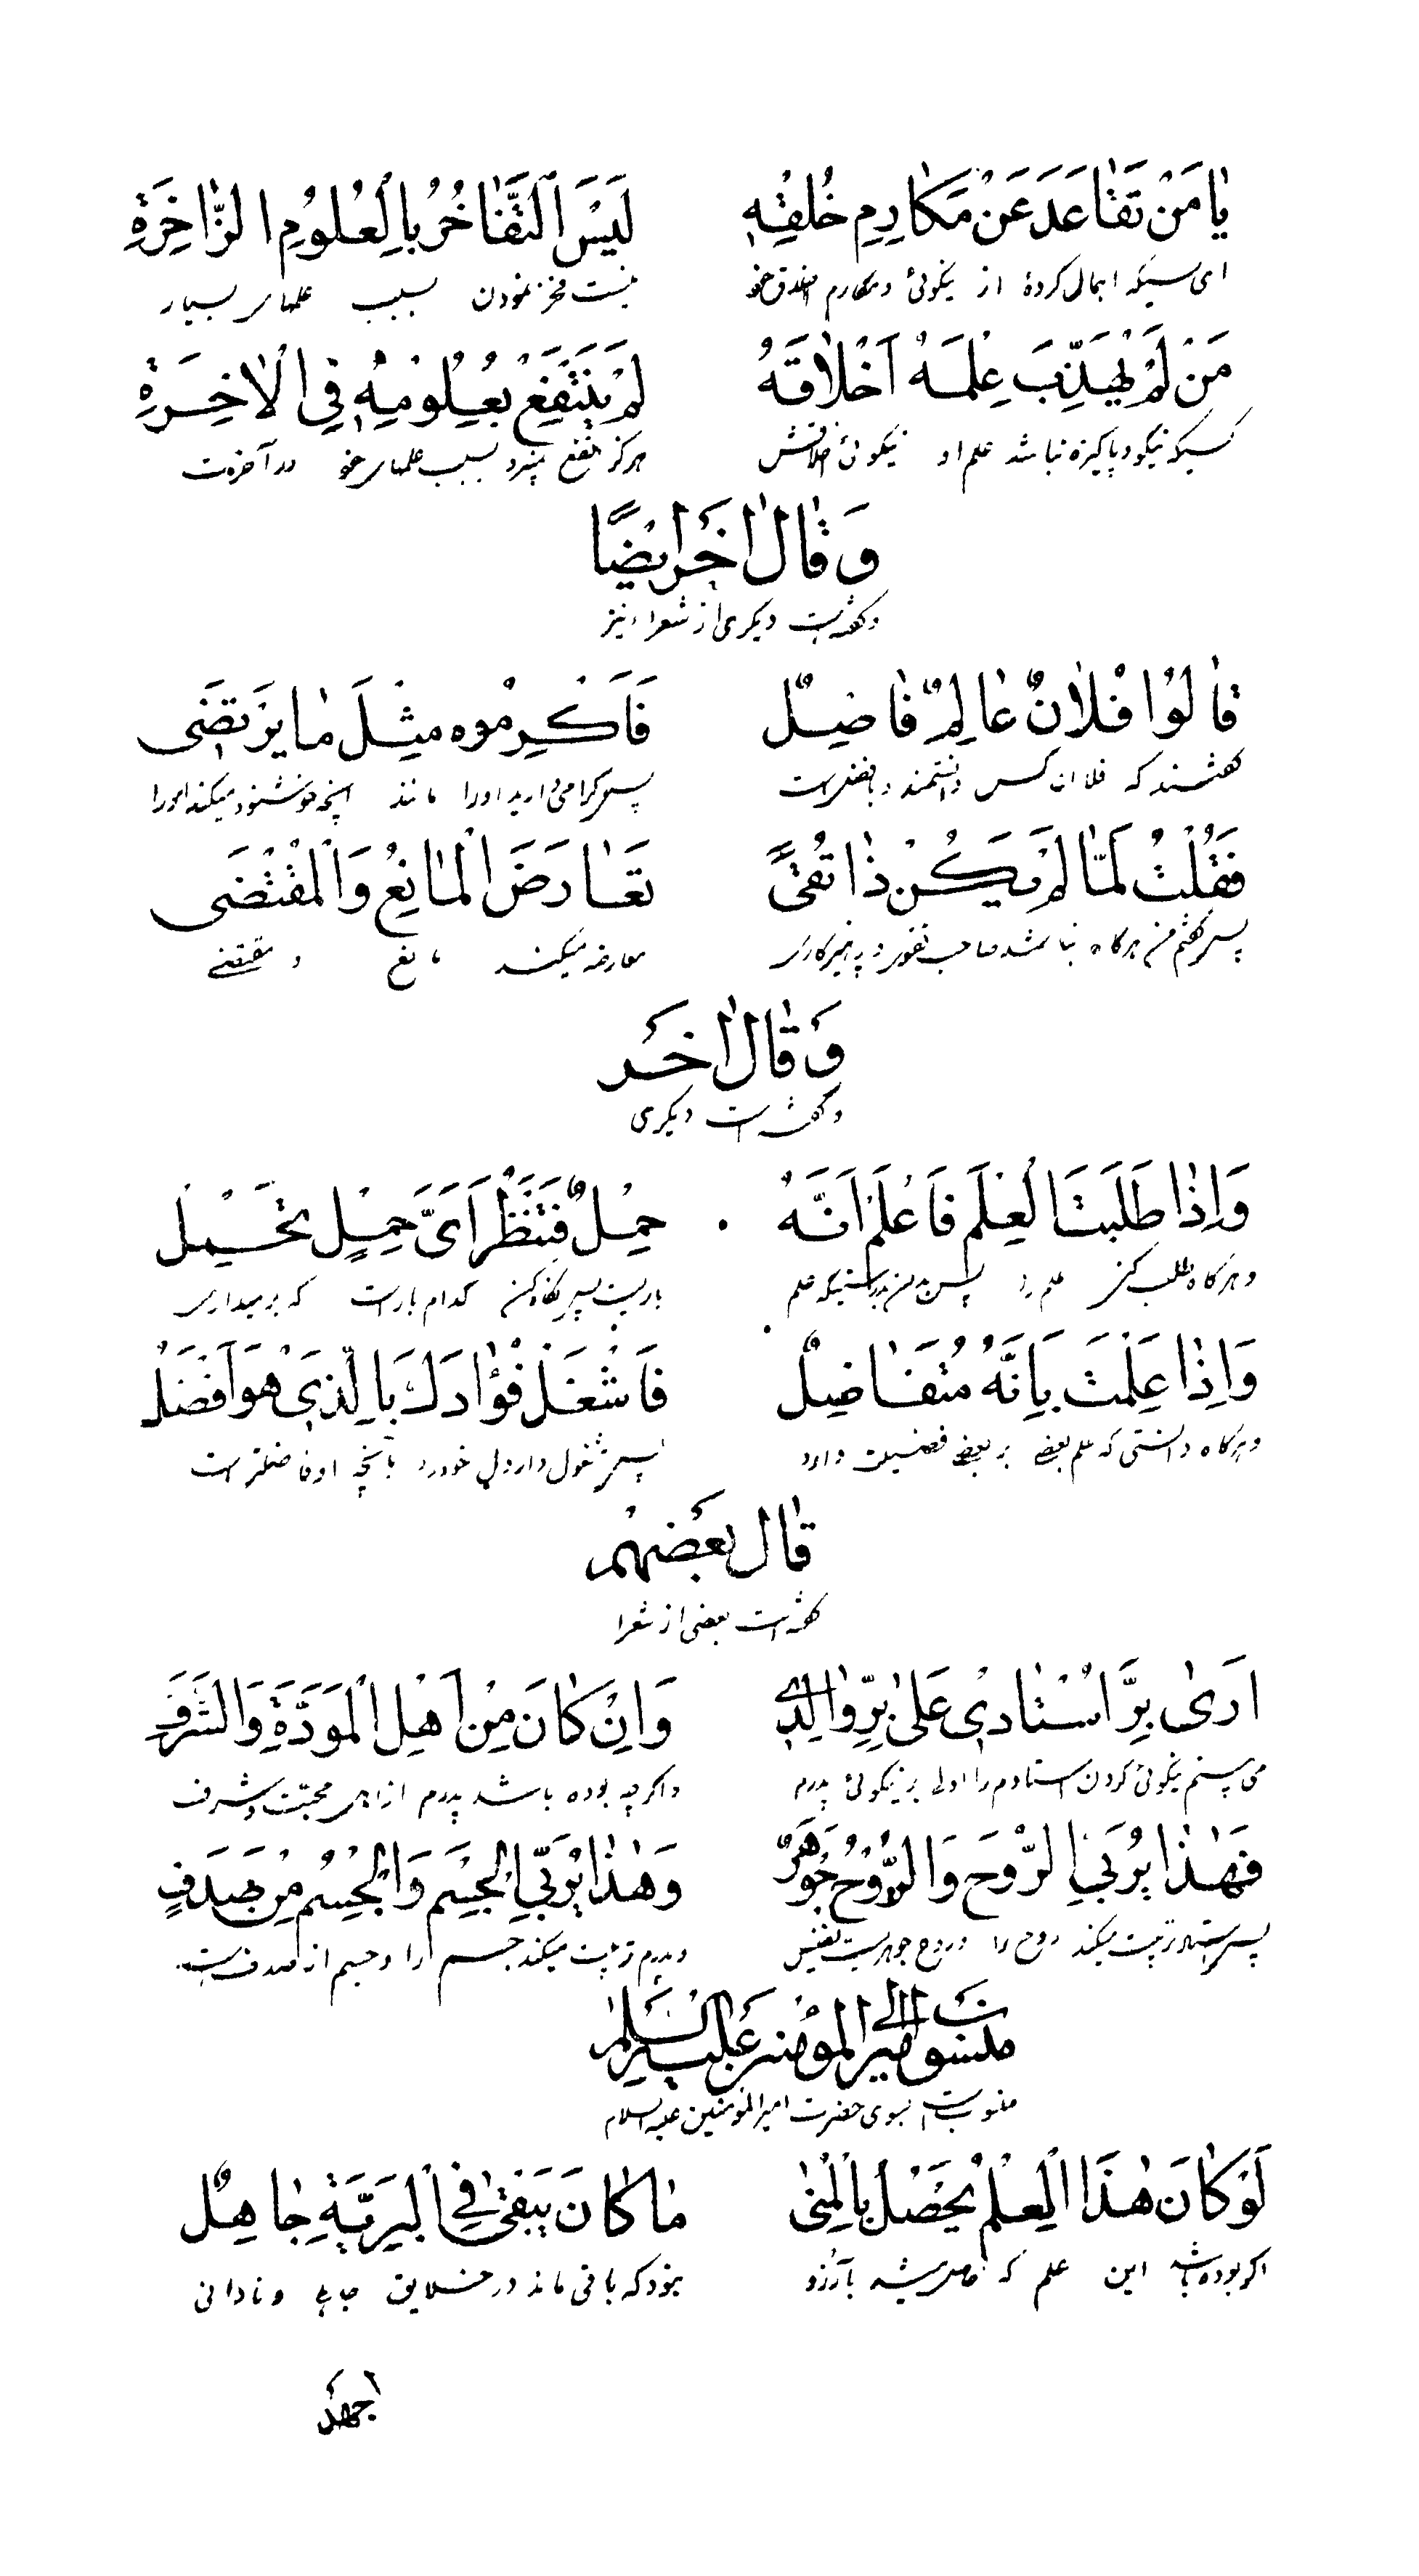 يٰا مَنْ تَقٰاعَدَ عَنْ مَكٰارِمِ خُلْقِهِ لَيْسَ التَّفٰاخُرُ بِالْعُلُومِ الزّٰاخِرَةِ
ای کسیکه اهمال کردهٔ از نیکوئی و مکارم اخلاق خو نیست فخر نمودن بسبب علمهای بسیار
مَنْ لَمْ يُهَذِّبَ عِلْمَهُ اَخْلٰاقَهُ لَمْ يَنْتَفِعْ بِعُلُومِهِ فِي الْاٰخِرَةِ
کسیکه نیکو و پاکیزه نباشد علم او نیکوئی اخلاقش هرگز نفع نبرد بسبب علمهای خو در آخرت
وَ قٰالَ اٰخَرُ ايْضًا
و گفته است دیگری از شعرا نیز
قٰالُوا فُلٰانٌ عٰالِمٌ فٰاضِلٌ فَاَكْرِمُوه مِثْلَ مٰا يَرْتَضَى
گفتند که فلان کس دانشمند و بافضل است پس گرامی دارید اورا مانند آنچه خوشنود میکند اورا
فَقُلْتُ لَمّٰا لَمْ يَكُنْ ذٰا تُقىً تَعٰارَضَ الْمٰانِعُ وَالْمُقْتَضَى
پس گفتم من هرگاه نباشد صاحب تقوی و پرهیزکاری معارضه میکند مانع و مقتضی
وَ قٰالَ اٰخَر
و گفته است دیگری
وَاِذٰا طَلَبْتَ الْعِلْمَ فَاعْلَمْ اَنَّهُ حِمْلٌ فَتَنْظُرْ اَيَّ حِمْلٍ تَحْمِلُ
و هرگاه طلب کنی علم را پس بدان بدرستیکه علم باریست پس نگاه کن کدام بار است که برمیداری
وَاِذٰا عَلِمْتَ بِاَنَّهُ مُتَفٰاضِلٌ فَاشْغَلْ فُؤٰادَكَ بِالَّذِي هُوَ اَفْضَلُ
و هرگاه دانستی که علم بعضی بر بعضی فضیلت دارد پس مشغول دار دل خود را بآنچه او فاضلتر است
قٰالَ بَعْضُهُمْ
گفته است بعضی از شعرا
اَرىٰ بِرَّ اُسْتٰادِي عَلىٰ بِرِّ وٰالِدِي وَاِنْ كٰانَ مِنْ اَهْلِ الْمَوَدَّةِ وَالشَّرَفِ
می بینم نیکوئی کردن استادم را اولی بر نیکوئی پدرم و اگر چه بوده باشد پدرم از اهل محبت و شرف
فَهٰذٰا يُرَبِّي الرُّوحَ وَالرُّوحُ جَوْهَرٌ وَهٰذٰا يُرَبِّي الْجِسْمَ وَالْجِسْمُ مِنْ صَدَفٍ
پس استاد تربیت میکند روح را و روح جوهریست نفیس و پدرم تربیت میکند جسم را و جسم از صدف است
منسوب الى امير المؤمنين عَلَيْهِ السَّلٰام
منسوبست بسوی حضرت امیرالمؤمنین علیه السلام
لَوْ كٰانَ هٰذَا الْعِلْمُ يَحْصُلُ بِالْمُنىٰ مٰا كٰانَ يَبْقىٰ فِي الْبَرِيَّةِ جٰاهِلٌ
اگر بوده باشد این علم که حاصل شود بآرزو نبود که باقی ماند در خلایق جاهلی و نادانی
اجْهَد